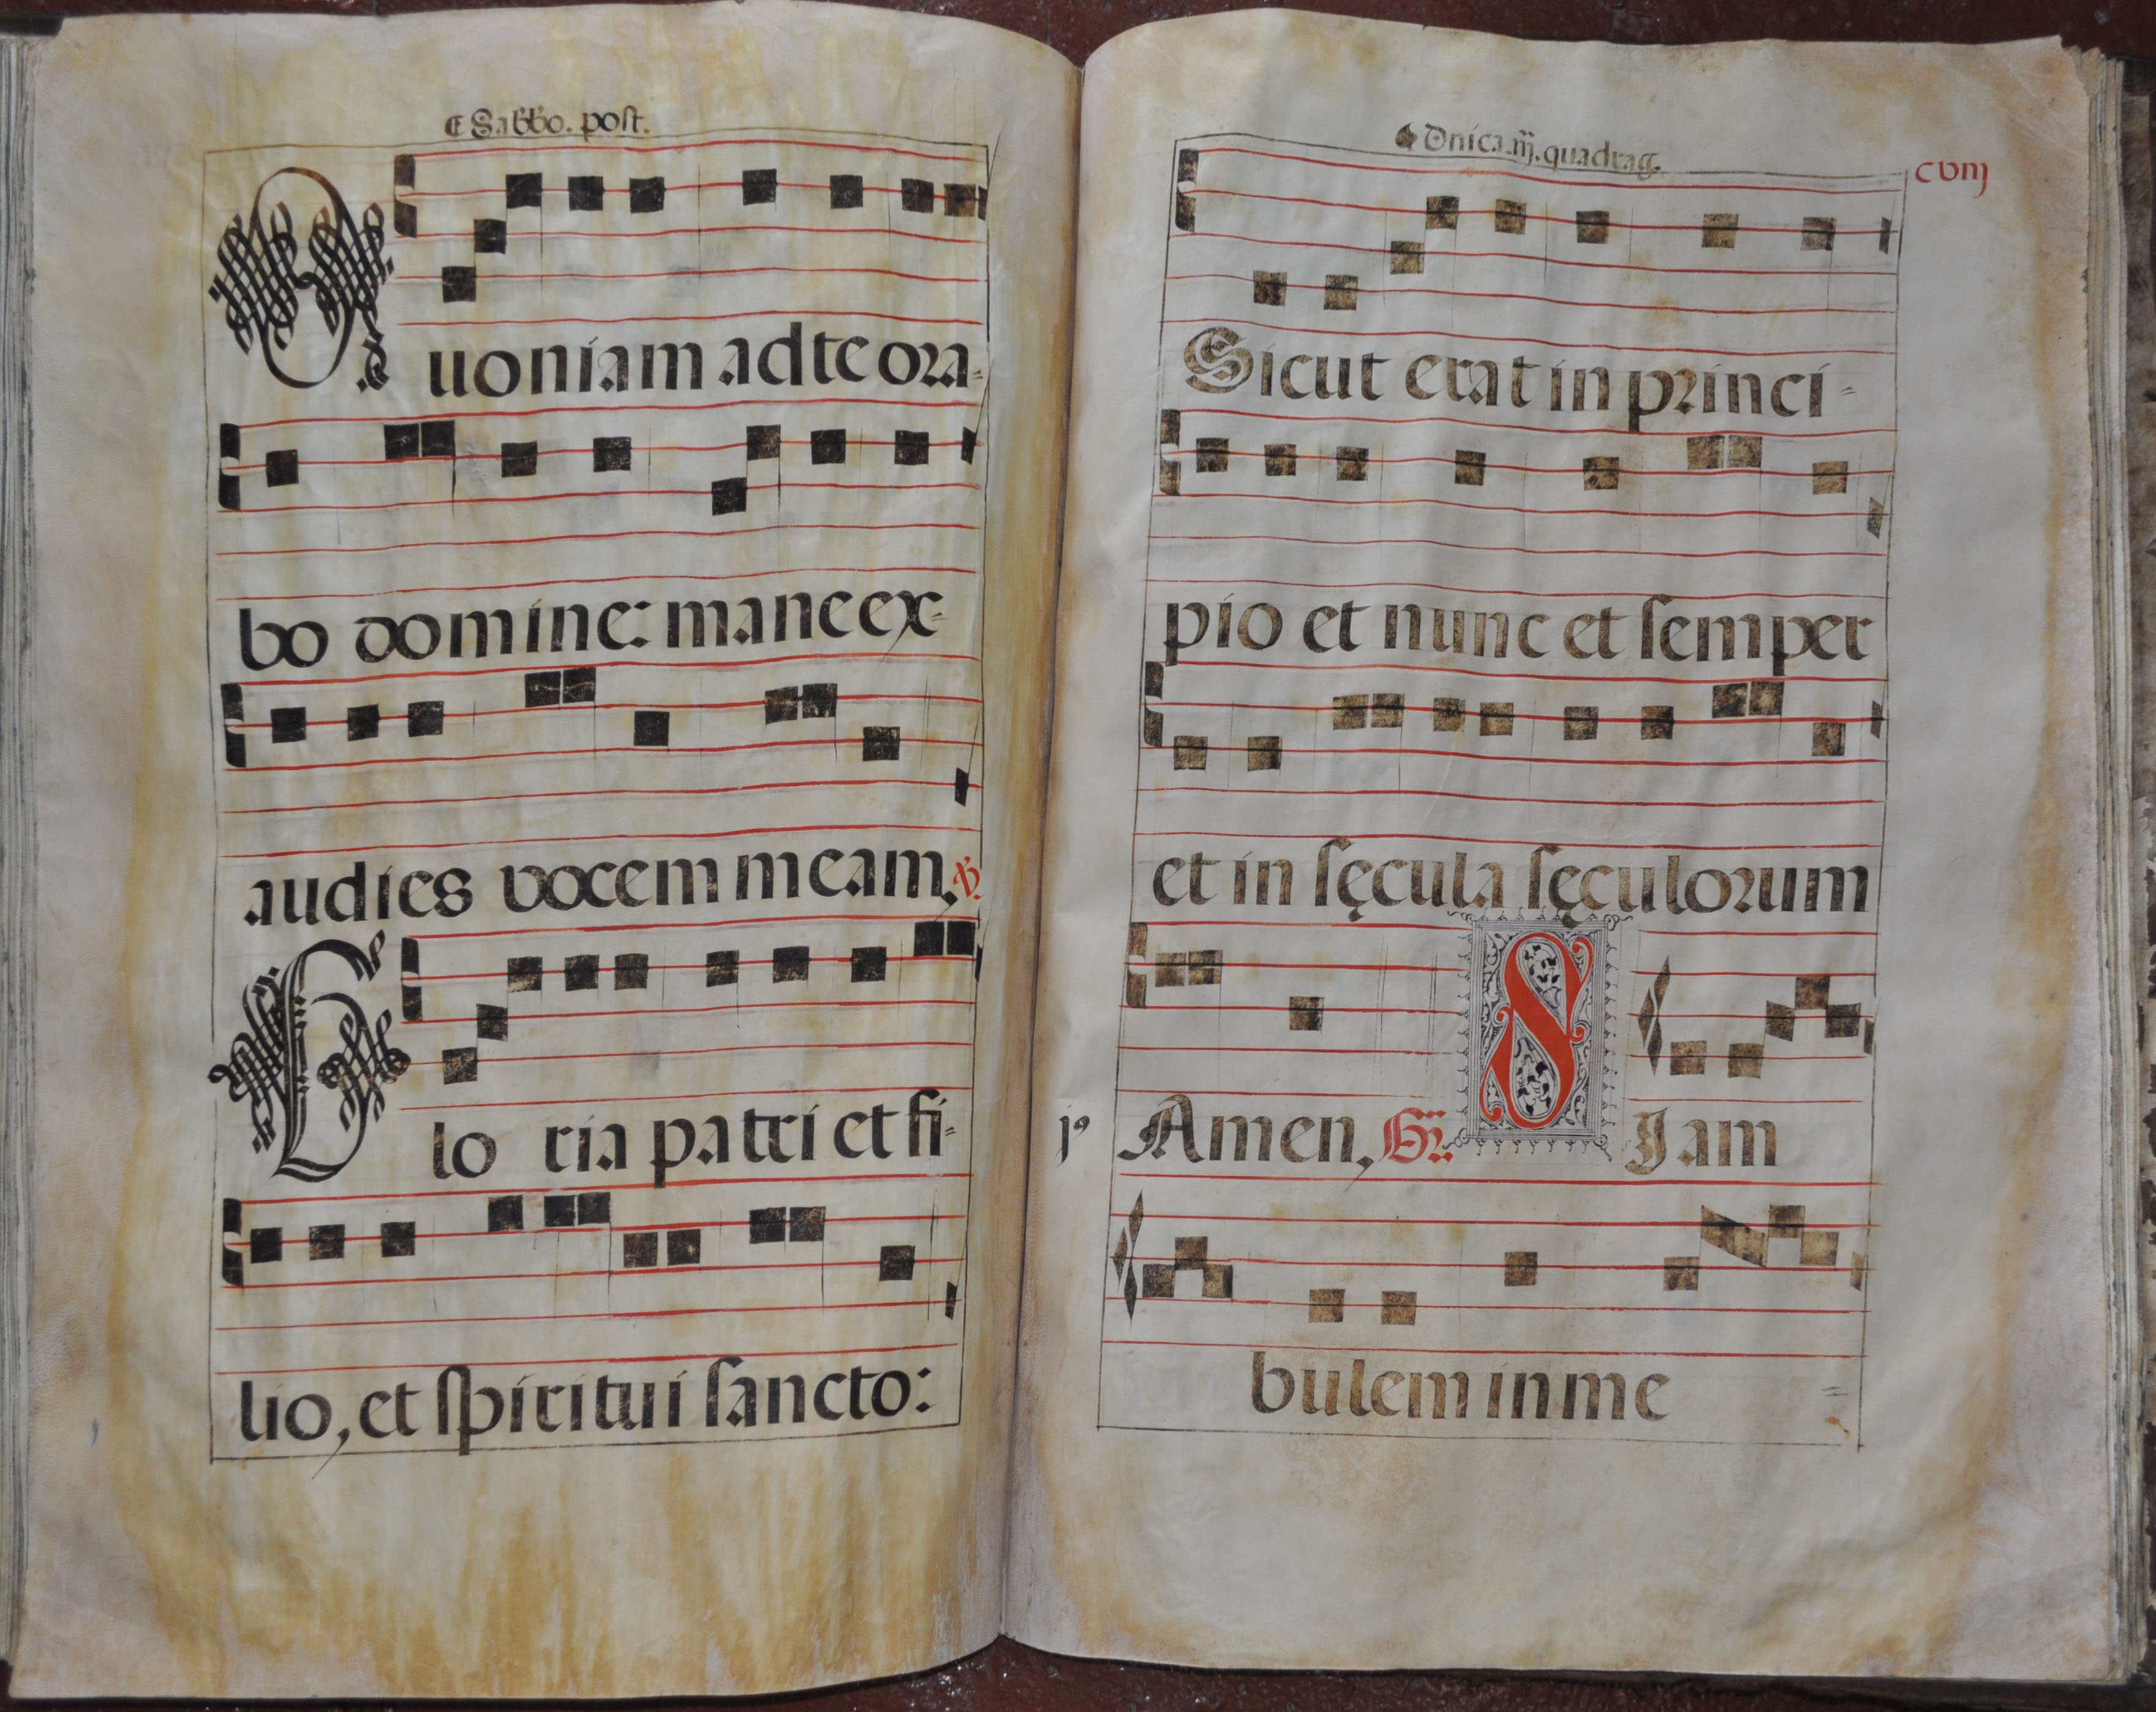 ¶ Sabbo. post.
Quoniam ad te ora-
bo domine: mane ex-
audies vocem meam. ℣.
Gloria patri et fi-
lio, et spiritui sancto:
Dnica. iij. quadrag.
cviij
Sicut erat in princi-
pio et nunc et semper
et in sęcula sęculorum
Amen, S Jam
bulem in me